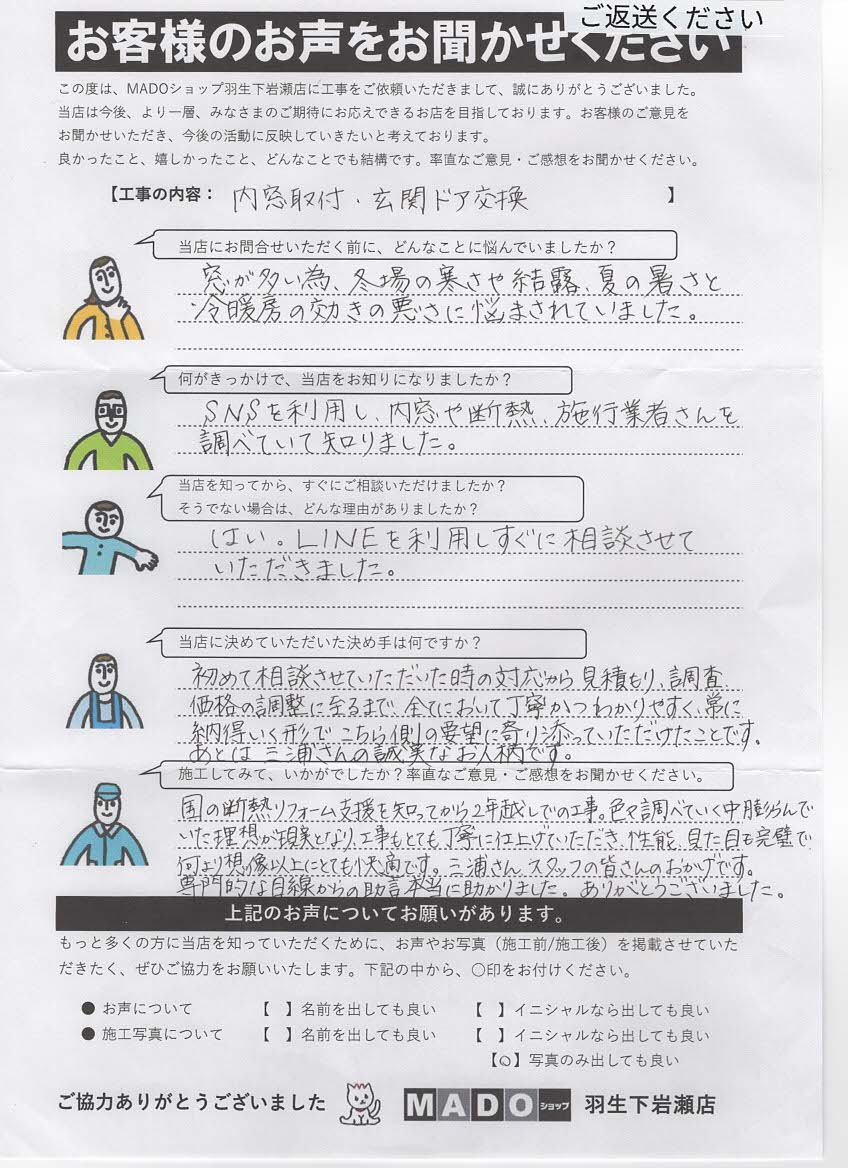 ご返送ください
お客様のお声をお聞かせください
この度は、MADOショップ羽生下岩瀬店に工事をご依頼いただきまして、誠にありがとうございました。
当店は今後、より一層、みなさまのご期待にお応えできるお店を目指しております。お客様のご意見を
お聞かせいただき、今後の活動に反映していきたいと考えております。
良かったこと、嬉しかったこと、どんなことでも結構です。率直なご意見・ご感想をお聞かせください。
【工事の内容： 内窓取付・玄関ドア交換 】
当店にお問合せいただく前に、どんなことに悩んでいましたか？
窓が多い為、冬場の寒さや結露、夏の暑さと
冷暖房の効きの悪さに悩まされていました。
何がきっかけで、当店をお知りになりましたか？
SNSを利用し、内窓や断熱、施行業者さんを
調べていて知りました。
当店を知ってから、すぐにご相談いただけましたか？
そうでない場合は、どんな理由がありましたか？
はい。LINEを利用しすぐに相談させて
いただきました。
当店に決めていただいた決め手は何ですか？
初めて相談させていただいた時の対応から見積もり、調査
価格の調整に至るまで、全てにおいて丁寧かつわかりやすく、常に
納得いく形でこちら側の要望に寄り添っていただけたことです。
あとは三浦さんの誠実なお人柄です。
施工してみて、いかがでしたか？率直なご意見・ご感想をお聞かせください。
国の断熱リフォーム支援を知ってから2年越しでの工事。色々調べていく中膨らんで
いた理想が現実となり、工事もとても丁寧に仕上げていただき、性能、見た目も完璧で
何より想像以上にとても快適です。三浦さん、スタッフの皆さんのおかげです。
専門的な目線からの助言本当に助かりました。ありがとうございました。
上記のお声についてお願いがあります。
もっと多くの方に当店を知っていただくために、お声やお写真（施工前/施工後）を掲載させていた
だきたく、ぜひご協力をお願いいたします。下記の中から、○印をお付けください。
● お声について 【 】名前を出しても良い 【 】イニシャルなら出しても良い
● 施工写真について 【 】名前を出しても良い 【 】イニシャルなら出しても良い
【○】写真のみ出しても良い
ご協力ありがとうございました MADOショップ 羽生下岩瀬店